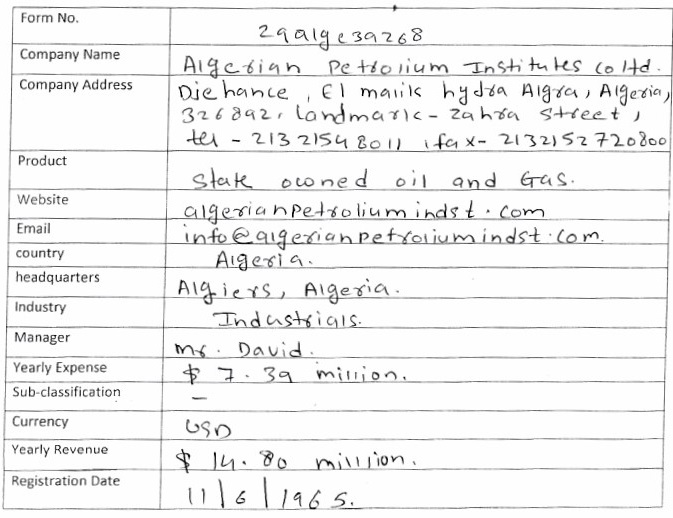 Form No. 29alge39268
Company Name Algerian Petrolium Institutes co ltd.
Company Address Djehance, El malik hydra Algra, Algeria,
326892, landmark - zahra street,
tel - 213 2154 8011, fax- 2132152720800
Product State owned oil and Gas.
Website algerianpetroliumindst.com
Email info@algerianpetroliumindst.com.
country Algeria.
headquarters Algiers, Algeria.
Industry Industrials.
Manager mr. David.
Yearly Expense $ 7.39 million.
Sub-classification –
Currency USD
Yearly Revenue $ 14.80 million.
Registration Date 11/6/1965.